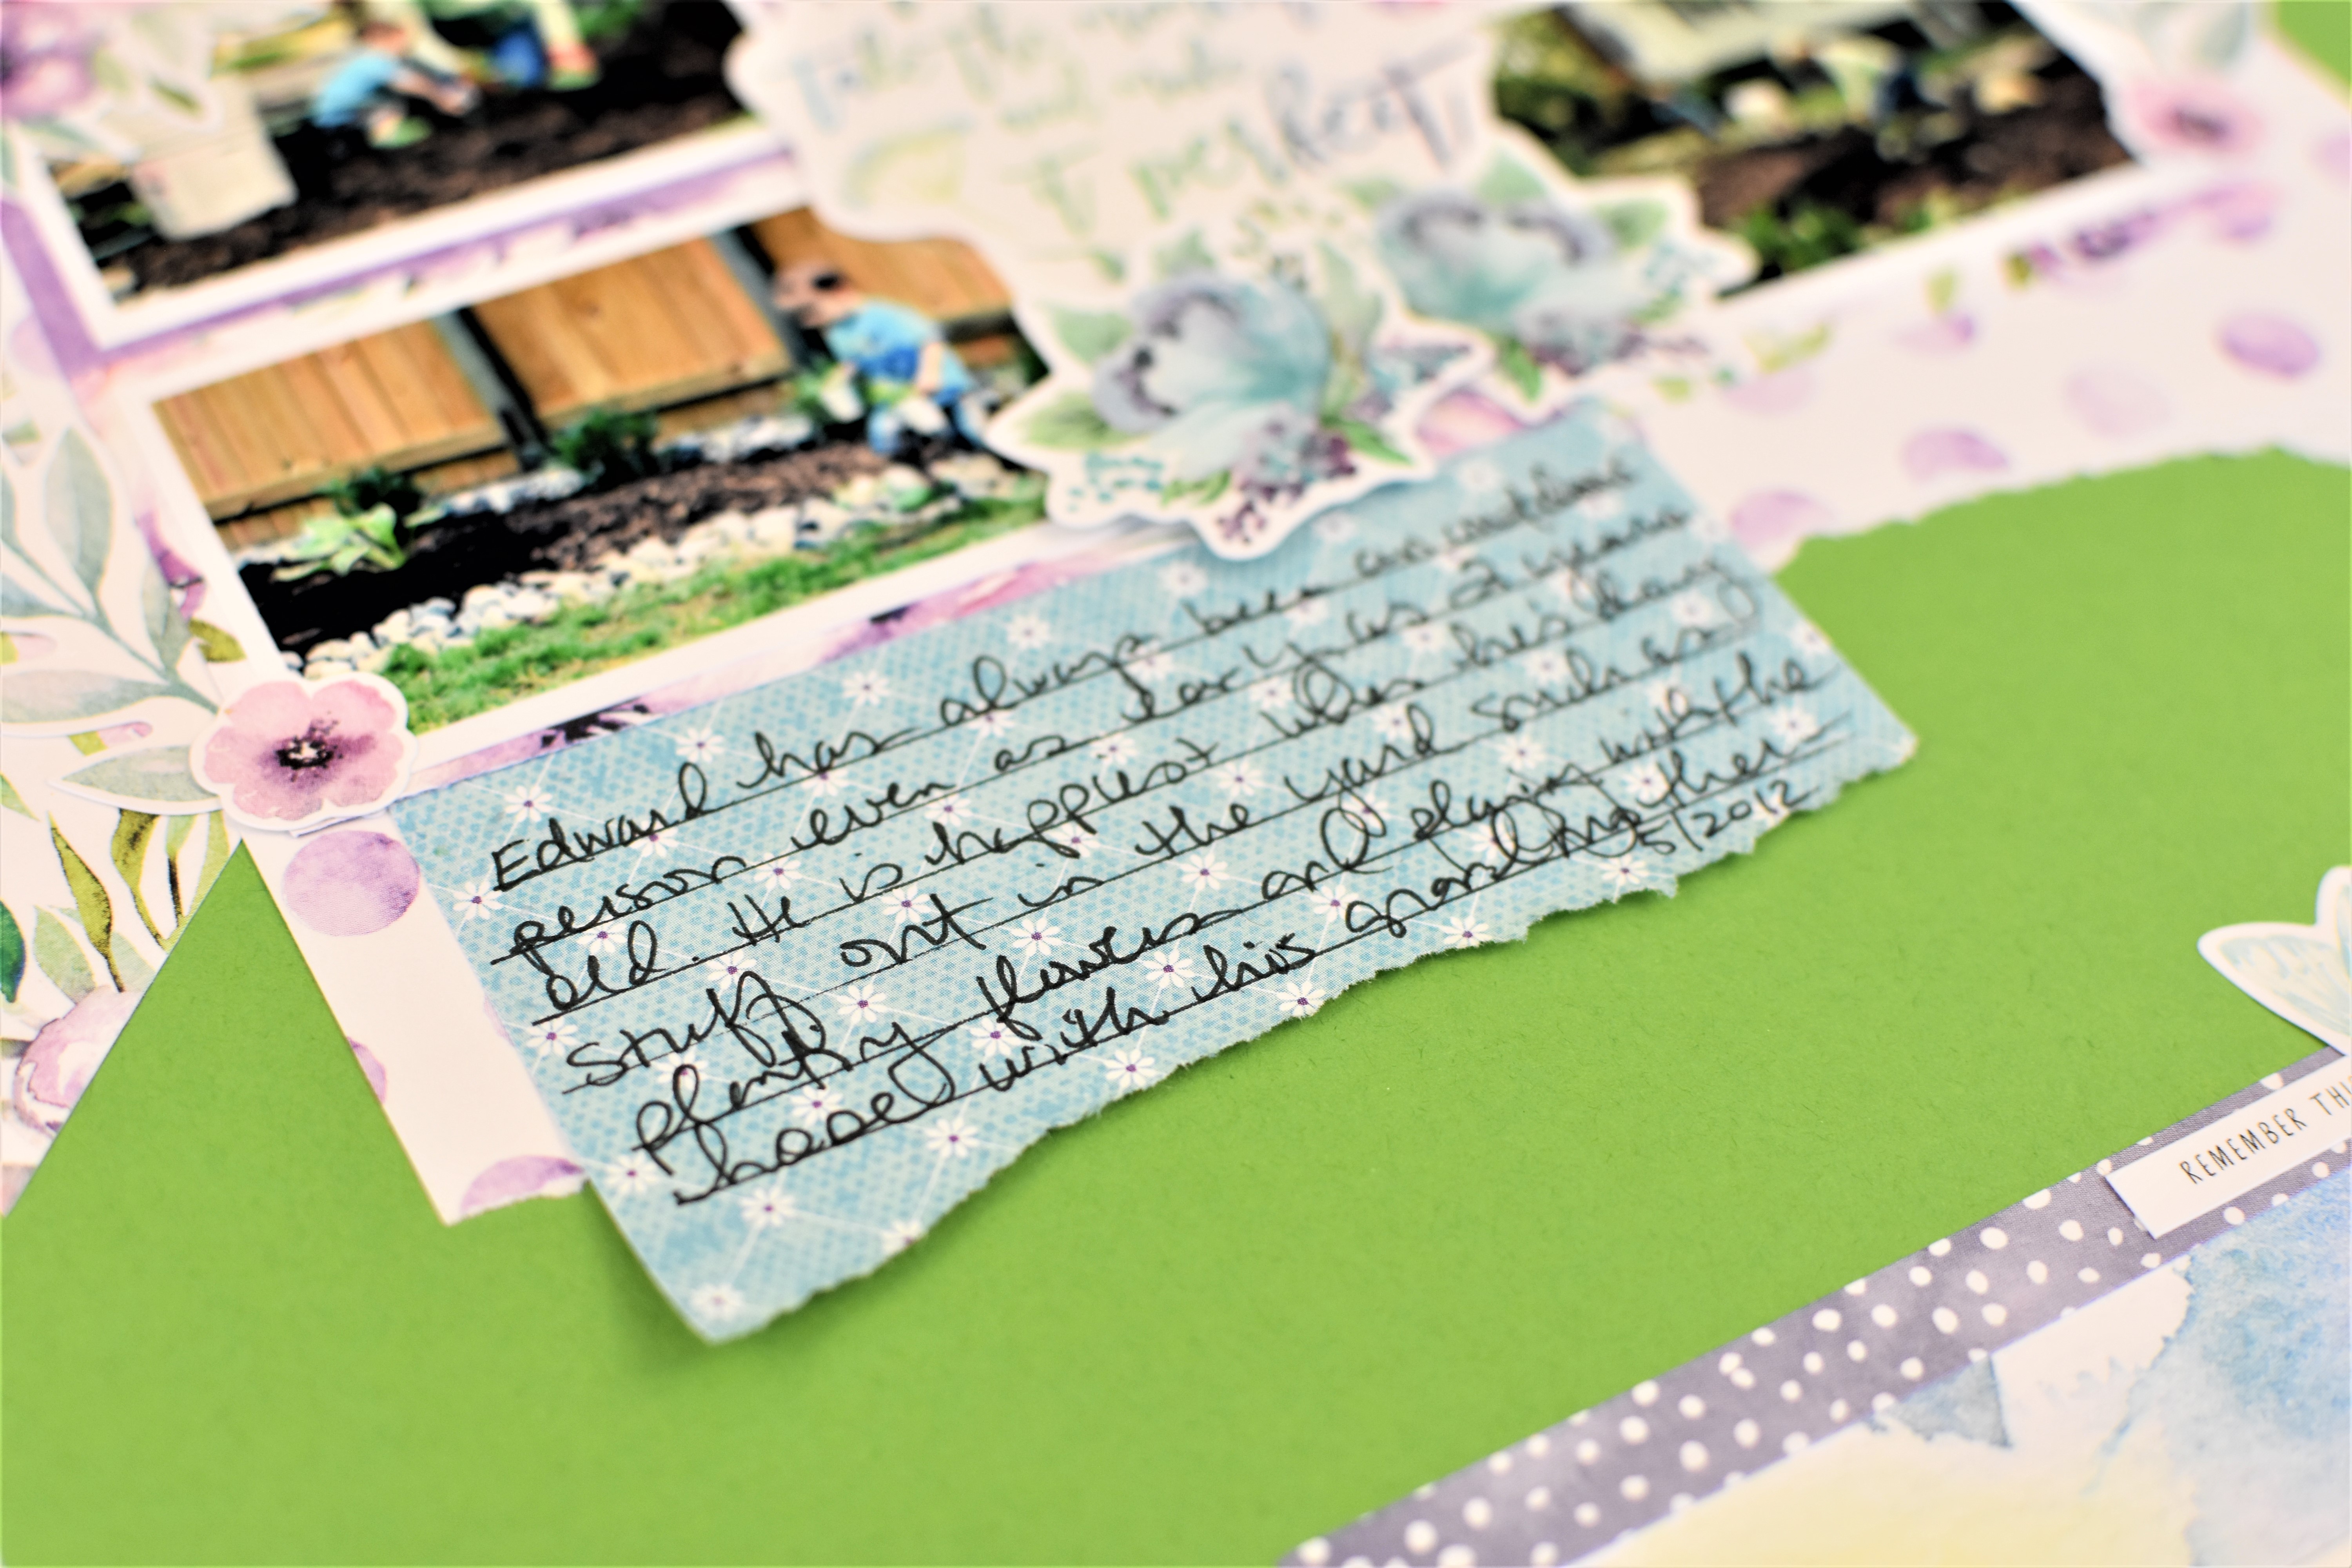 PERFECT!
Edward has always been an outdoor
person even as early as 2 years
old. He is happiest when he's doing
stuff out in the yard such as
planting flowers and playing with the
hose with his grandmother -
5/2012
REMEMBER